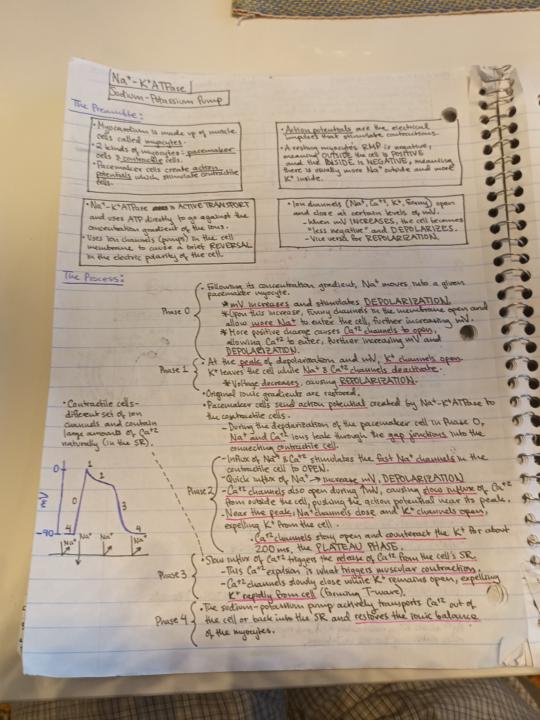 Na⁺-K⁺ATPase
Sodium-Potassium Pump
The Preamble:
• Myocardium is made up of muscle
cells called myocytes.
• 2 kinds of myocytes: pacemaker
cells & contractile cells.
• Pacemaker cells create action
potentials which stimulate contractile
cells.
• Action potentials are the electrical
impulses that stimulate contractions.
• A resting myocyte's RMP is negative,
meaning OUTSIDE the cell is POSITIVE
and the INSIDE is NEGATIVE, meaning
there is usually more Na⁺ outside and more
K⁺ inside.
• Na⁺-K⁺ATPase is ACTIVE TRANSPORT
and uses ATP directly to go against the
concentration gradient of the ions.
• Uses ion channels (pumps) in the cell
membrane to cause a brief REVERSAL
in the electric polarity of the cell.
• Ion channels (Na⁺, Ca⁺², K⁺, Funny) open
and close at certain levels of mV.
- When mV INCREASES, the cell becomes
"less negative" and DEPOLARIZES.
- Vice versa for REPOLARIZATION.
The Process:
Phase 0
• Following its concentration gradient, Na⁺ moves into a given
pacemaker myocyte.
* mV increases and stimulates DEPOLARIZATION.
* Upon this increase, Funny channels in the membrane open and
allow more Na⁺ to enter the cell, further increasing mV.
* More positive charge causes Ca⁺² channels to open,
allowing Ca⁺² to enter, further increasing mV and
DEPOLARIZATION.
Phase 1
• At the peak of depolarization and mV, K⁺ channels open.
K⁺ leaves the cell while Na⁺ & Ca⁺² channels deactivate.
* Voltage decreases, causing REPOLARIZATION.
• Original ionic gradients are restored.
• Pacemaker cells send action potential created by Na⁺-K⁺ATPase to
the contractile cells.
- During the depolarization of the pacemaker cell in Phase 0,
Na⁺ and Ca⁺² ions leak through the gap junctions into the
connecting contractile cell.
• Contractile cells-
different set of ion
channels and contain
large amounts of Ca⁺²
naturally (in the SR).
Phase 2
- Influx of Na⁺ & Ca⁺² stimulates the fast Na⁺ channels in the
contractile cell to OPEN.
- Quick influx of Na⁺ → increase mV, DEPOLARIZATION
- Ca⁺² channels also open during this, causing slow influx of Ca⁺²
from outside the cell, pushing the action potential near its peak.
- Near the peak, Na⁺ channels close and K⁺ channels open,
expelling K⁺ from the cell.
• Ca⁺² channels stay open and counteract the K⁺ for about
200 ms, the PLATEAU PHASE.
Phase 3
• Slow influx of Ca⁺² triggers the release of Ca⁺² from the cell's SR.
- This Ca⁺² explosion is what triggers muscular contraction.
- Ca⁺² channels slowly close while K⁺ remains open, expelling
K⁺ rapidly from cell (forming T-wave).
Phase 4
• The sodium-potassium pump actively transports Ca⁺² out of
the cell or back into the SR and restores the ionic balance
of the myocytes.
mV
0
-90
1
2
0
3
4
4
Na⁺
Na⁺
Na⁺